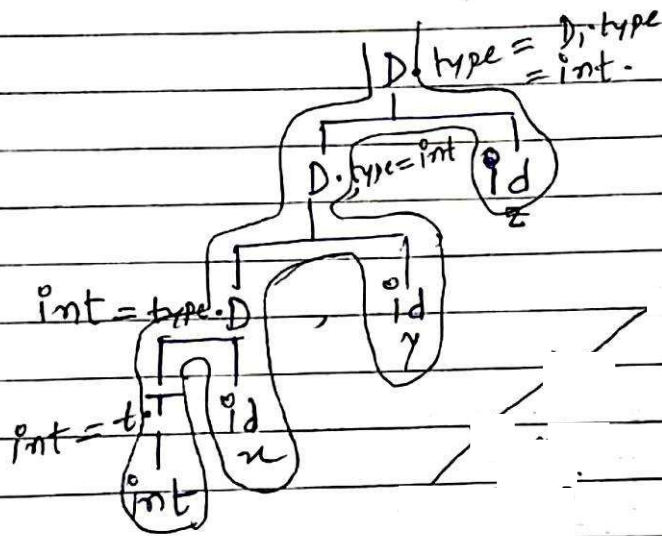 D. type = D₁.type
= int.
D. type=int id
z
int = type. D , id
y
int = t. T id
x
int